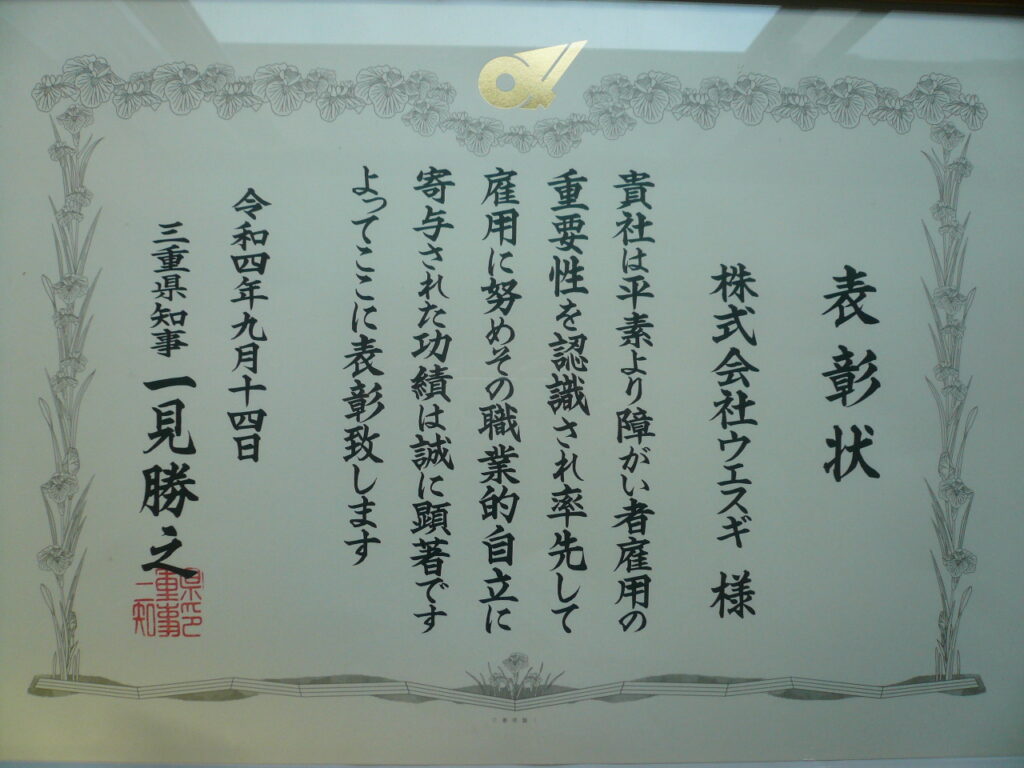 表彰状
株式会社ウエスギ 様
貴社は平素より障がい者雇用の
重要性を認識され率先して
雇用に努めその職業的自立に
寄与された功績は誠に顕著です
よってここに表彰致します
令和四年九月十四日
三重県知事 一見勝之
三重県知事印